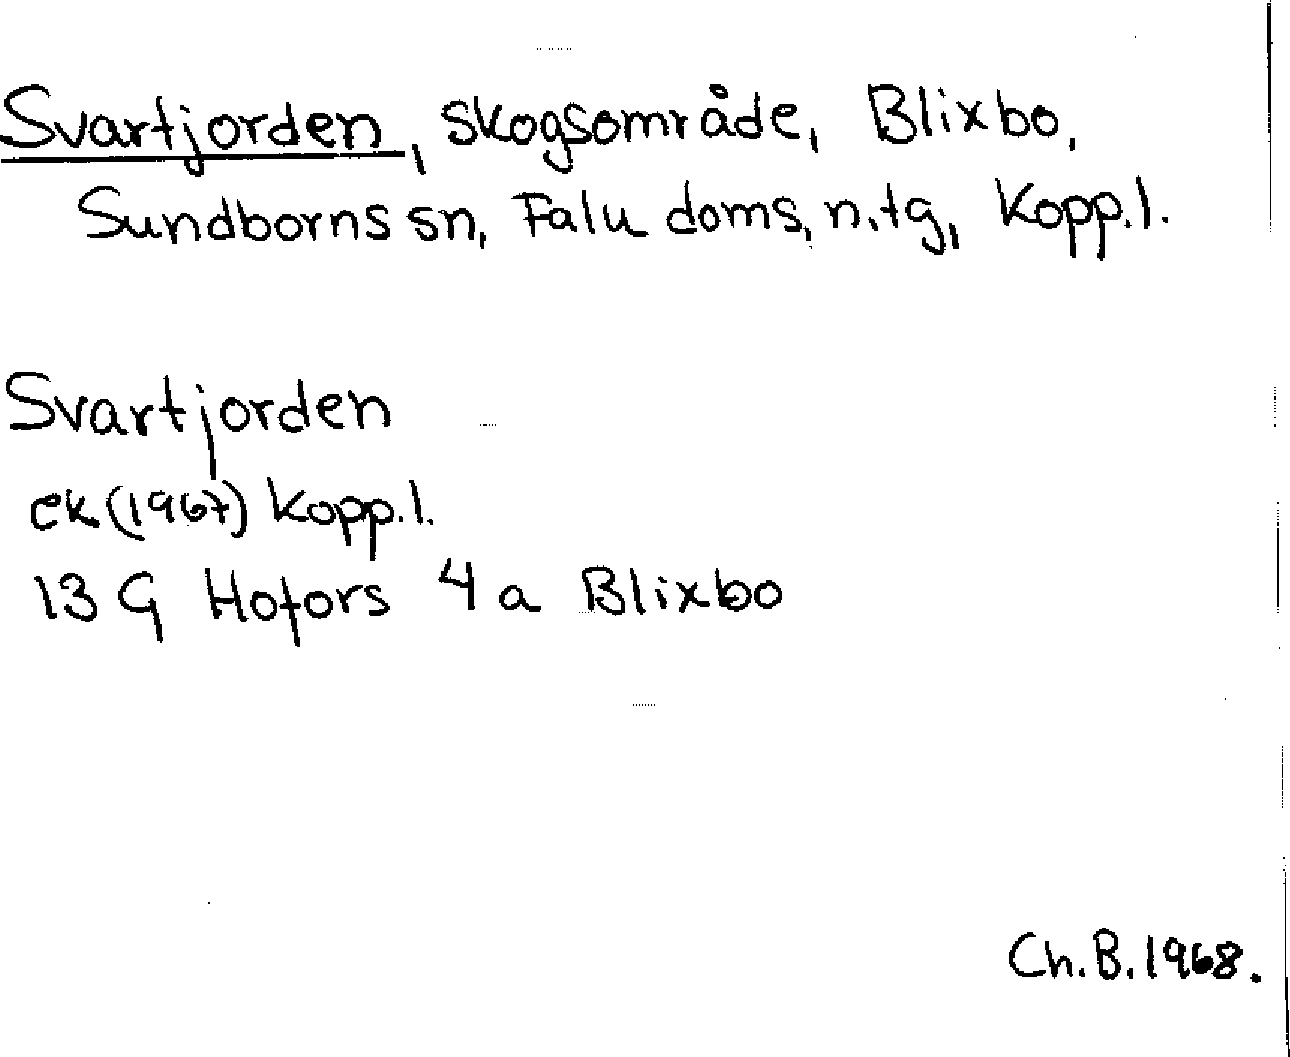 Svartjorden, skogsområde, Blixbo,
Sundborns sn, Falu doms, n.tg, Kopp.l.
Svartjorden
ek (1967) Kopp.l.
13 G Hofors 4 a Blixbo
Ch.B. 1968.